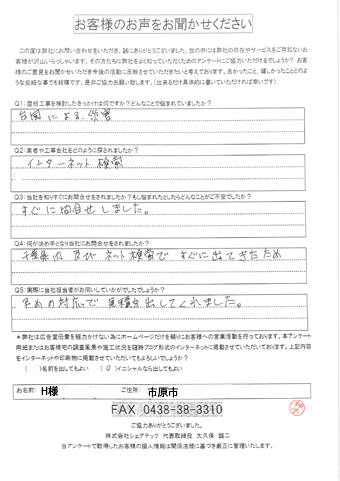 お客様のお声をお聞かせください
この度は弊社にお問い合わせをいただき、誠にありがとうございました。世の中には弊社の存在やサービスをご存知ないお
客様が沢山いらっしゃいます。その方たちに弊社をよく知っていただくためのアンケートにご協力いただけるでしょうか?お
客様のご意見をお聞かせいただき今後の活動に反映させていただきたいと考えております。良かったこと、嬉しかったことどのよ
うな些細な事でも結構です。是非ご協力お願い致します。(出来るだけ具体的に書いていただければ幸いです)
Q1:屋根工事を検討したきっかけは何ですか?どんなことで悩まれていましたか?
台風による災害
Q2:業者や工事会社をどのように探されましたか?
インターネット検索
Q3:当社を知りすぐにお問合せをされましたか?もし悩まれたとしたらどんなことがご不安でしたか?
すぐに問合せしました。
Q4:何が決め手となり当社にお問合せをされましたか?
千葉県内及びネット検索ですぐに出てきたため
Q5:実際に当社担当者がお伺いしていかがでしたでしょうか?
早めの対応で見積を出してくれました。
*弊社は広告宣伝費を極力かけない為にホームページだけを頼りにお客様への営業活動を行っております。本アンケート
用紙またはお客様宅の調査風景や施工状況を随時ブログ形式のインターネットに掲載させていただいております。上記内容
をインターネットや印刷物に掲載させていただいてもよろしいでしょうか?
( )名前を出してもよい (○)イニシャルなら出してもよい
お名前: H様 ご住所: 市原市
FAX 0438-38-3310
ご協力ありがとうございました。
株式会社シェアテック 代表取締役 大久保 誠二
当アンケートで取得したお客様の個人情報は関係法規に基づき厳正に管理いたします。